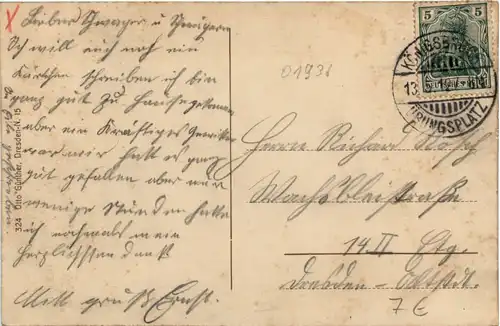 Lieber Schwager u Schwägerin
Ich will euch noch ein
Kärtchen schreiben ich bin
ganz gut zu Hause gekommen
aber ein Kräftiges Gewitter
war mir hatt es ganz
gut gefallen aber nur
wenige Stunden hatte
ich nochmals mein
herzlichsten dank
Mitt gruß Ernst.
324 Otto Günther, Dresden-N. 15
01936
5 5
KÖNIGSBRÜCK
13.
ÜBUNGSPLATZ
Herrn Richard
14 II Etg.
Dresden - Altstdt.
7 €